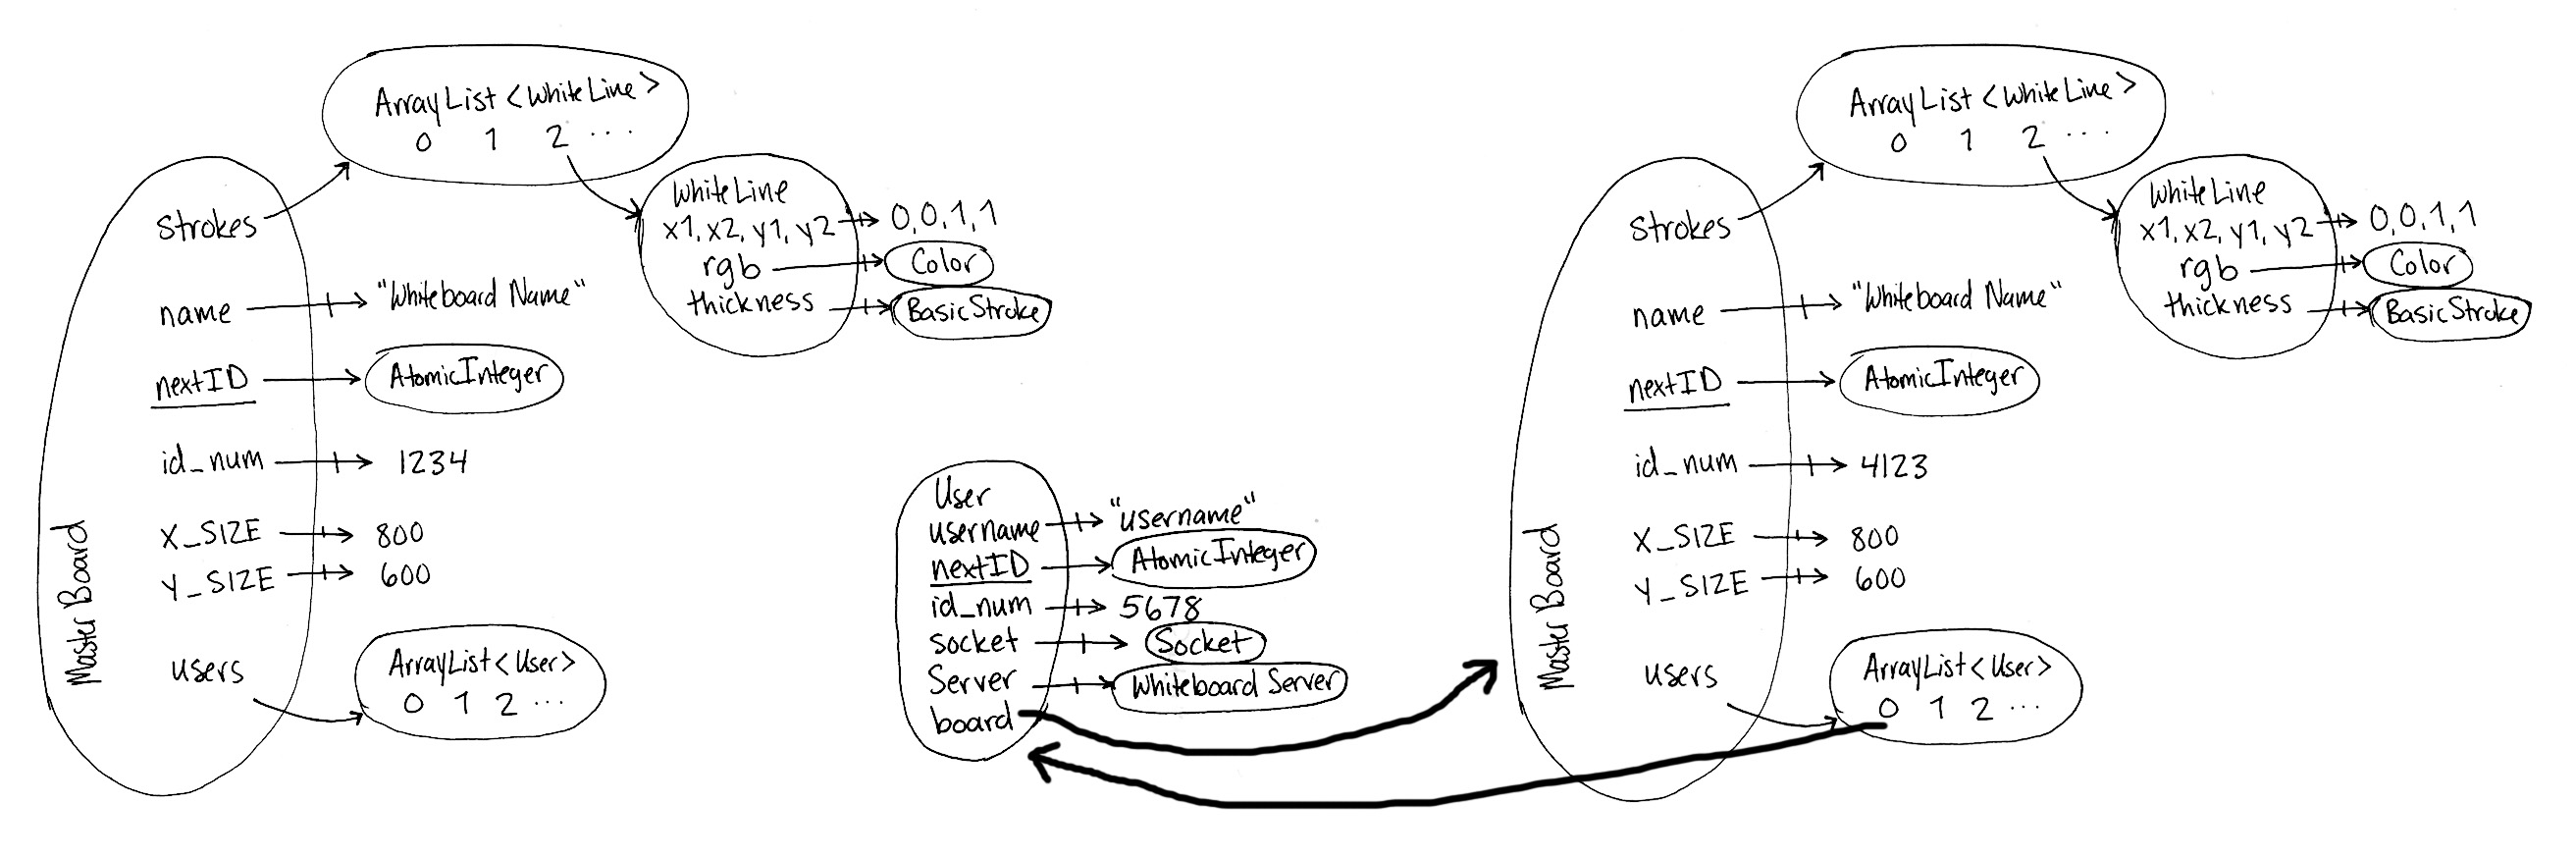 ArrayList<WhiteLine>
0 1 2 ...
WhiteLine
x1, x2, y1, y2 0,0,1,1
rgb Color
thickness BasicStroke
Master Board
strokes
name "Whiteboard Name"
nextID AtomicInteger
id_num 1234
X_SIZE 800
Y_SIZE 600
users
ArrayList<User>
0 1 2 ...
User
username "username"
nextID AtomicInteger
id_num 5678
socket Socket
Server Whiteboard Server
board
ArrayList<WhiteLine>
0 1 2 ...
WhiteLine
x1, x2, y1, y2 0,0,1,1
rgb Color
thickness BasicStroke
Master Board
strokes
name "Whiteboard Name"
nextID AtomicInteger
id_num 4123
X_SIZE 800
Y_SIZE 600
users
ArrayList<User>
0 1 2 ...